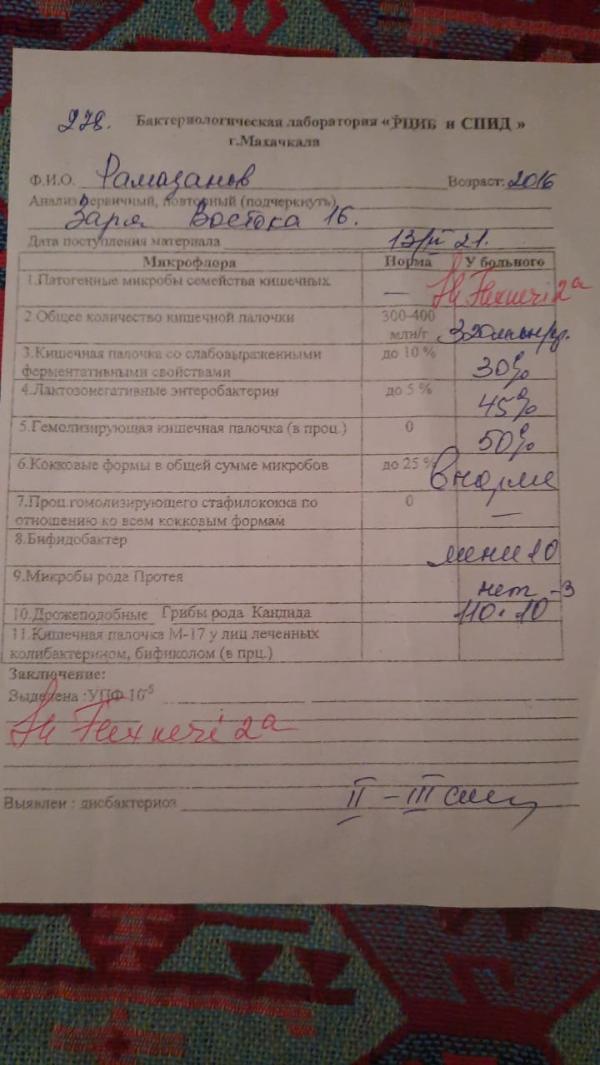 278. Бактериологическая лаборатория «РЦИБ и СПИД»
г.Махачкала
Ф.И.О. Рамазанов Возраст: 2016
Анализ первичный, повторный (подчеркнуть)
Заря Востока 16.
Дата поступления материала 13/II 21.
Микрофлора Норма У больного
1.Патогенные микробы семейства кишечных — Sh Flexneri 2a
2.Общее количество кишечной палочки 300-400 млн/г 320млн/гр.
3.Кишечная палочка со слабовыраженными до 10 %
ферментативными свойствами 30%
4.Лактозонегативные энтеробактерии до 5 % 45%
5.Гемолизирующая кишечная палочка (в проц.) 0 50%
6.Кокковые формы в общей сумме микробов до 25 % в норме
7.Проц.гомолизирующего стафилококка по 0 —
отношению ко всем кокковым формам
8.Бифидобактер мене 10
9.Микробы рода Протея нет
10.Дрожеподобные Грибы рода Кандида 110·10 -3
11.Кишечная палочка М-17 у лиц леченных
колибактерином, бификолом (в прц.)
Заключение:
Выделена :УПФ 10-5
Sh Flexneri 2a
Выявлен : дисбактериоз II – III